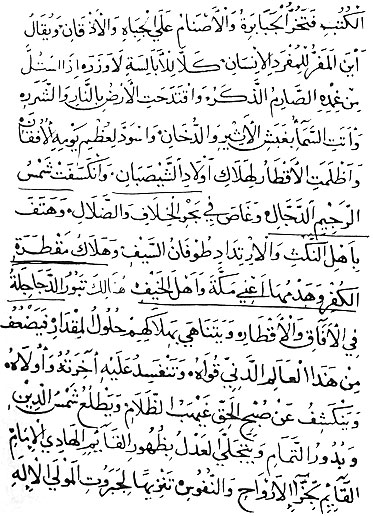 الكُتُبِ فَتَخِرُّ الجَبابِرةُ وَالأصْنام عَلى الجِباهِ والأذقانِ وَيُقالُ
اين المَفَرُّ للمَفرّدِ الإنسَانِ كلّا للأبَالِسَةِ لا وَزرَ اذا استُلَّ
مِن غمِدِهِ الصّارِم الذَكَرُ وَاقْتَدَحَتِ الأرضُ بِالنّارِ وَالشَّرَرِ
وَأتَتِ السَّمآءُ بِغَيثِ الأثيرِ وَالدُخانِ وَاسوَدَّ لِعظيم يَومِهِ الأفُقانِ
وَاظلَمَتِ الأقطَار لِهلاكِ أولادِ الشّيصَبان وَانكسَفَتْ شَمْسُ
الرّجيم الدَّجّال وَغَاصَ في بحر الخلافِ والضَّلالِ وَهَتَفَ
بِاهلِ النّكثِ وَالإرتِدادِ طوفانُ السَّيفِ وَهَلاكُ
الكُفرِ وَهَدْمُهَا اعني مَكّةَ وَاهلَ الخيف هُنالِكَ تبُورُ الدَّجاجِلَةُ
في الآفاقِ وَالأقطارِ وَيتناهى بهَلاكِهمْ حُلولُ المِقدارِ فَيَضْعُفُ
مِن هَذا العالم الدَّنيّ قُواهُ وَتَنْفَسِدُ عَلَيهِ اُخرَتهُ وَاُولاهُ
وَينكشفُ عَن صُبحِ الحقّ غيْهَبُ الظّلامِ وَيَطلعُ شمْسُ الدّينِ
وَبدُورُ التّمامِ وَيتَجلّى العَدلُ بظُهورِ القَآئِمِ الهَادي الإمَامِ
القَآئِمِ بجَزَآءِ الأرواحِ وَالنُّفُوسِ تنزيهًا لجبرُوتِ المَولى الإلهِ